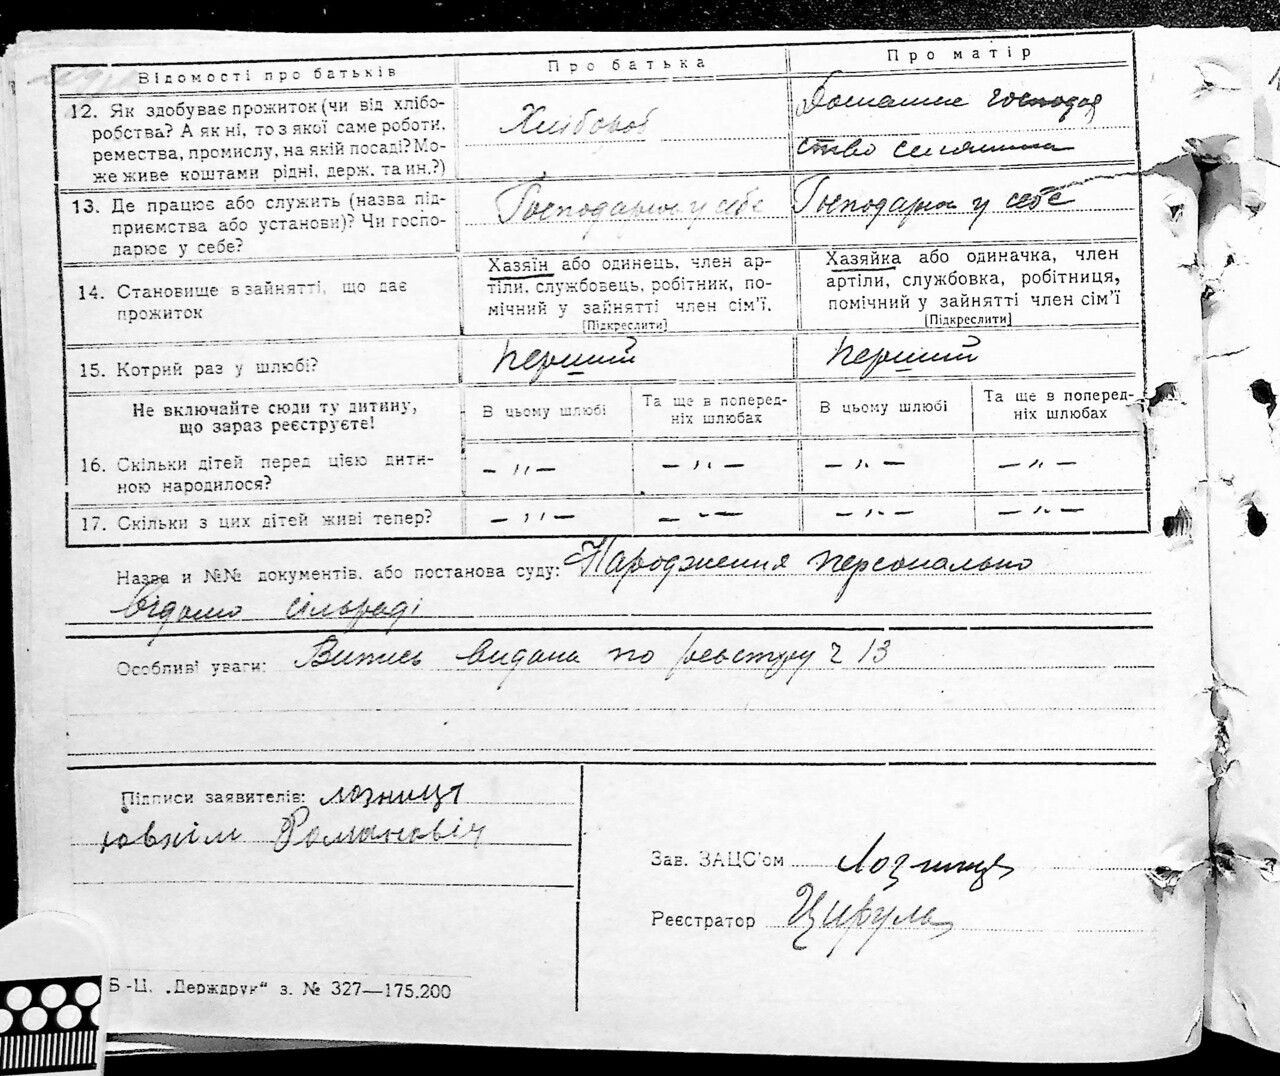 Відомості про батьків Про батька Про матір
12. Як здобуває прожиток (чи від хлібо- Домашнє господар
робства? А як ні, то з якої саме роботи, Хлібороб
ремества, промислу, на якій посаді? Мо- ство селянина
же живе коштами рідні, держ. та ин.?)
13. Де працює або служить (назва під- Господарює у себе Господарює у себе
приємства або установи)? Чи госпо-
дарює у себе?
14. Становище в зайнятті, що дає
прожиток
Хазяїн або одинець, член ар-
тіли, службовець, робітник, по-
мічний у зайнятті член сім'ї.
[Підкреслити]
Хазяйка або одиначка, член
артіли, службовка, робітниця,
помічний у зайнятті член сім'ї
[Підкреслити]
15. Котрий раз у шлюбі? перший перший
Не включайте сюди ту дитину,
що зараз реєструєте!
В цьому шлюбі
Та ще в поперед-
ніх шлюбах
В цьому шлюбі
Та ще в поперед-
ніх шлюбах
16. Скільки дітей перед цією дити- – " – – " – – " – – " –
ною народилося?
17. Скільки з цих дітей живі тепер? – " – – " – – " – – " –
Назва и №№ документів, або постанова суду: Народження персонально
відомо сільраді
Особливі уваги: Випись видана по реєстру ч 13
Підписи заявителів: лозниця
ювхим Романовіч
Зав. ЗАЦС'ом Лозниця
Реєстратор Цируль
Б-Ц. „Держдрук" з. № 327—175.200